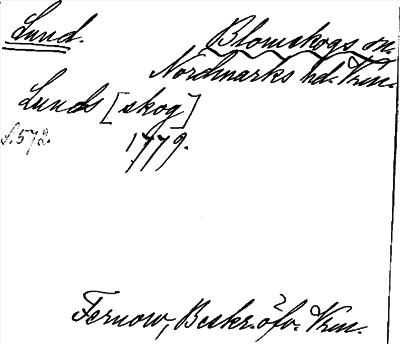 Lund. Blomskogs sn.
Nordmarks hd. Vrm.
Lunds [skog]
s. 572. 1779.
Fernow, Beskr. öfv. Vrm.